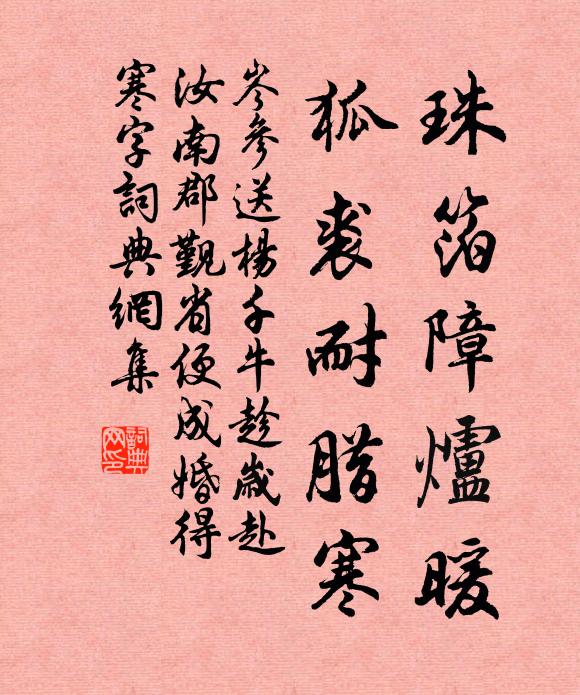 珠箔障爐暖
狐裘耐腊寒
岑參送楊千牛趁歲赴
汝南郡覲省便成婚得
寒字詞典網集
詞典
网印